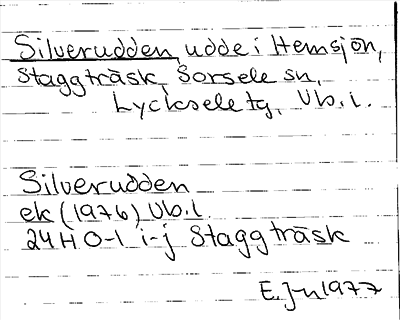 Silverudden, udde i Hemsjön,
Staggträsk, Sorsele sn,
Lycksele tg, Vb. l.
Silverudden
ek (1976) Vb. l.
24H 0-1 i-j Staggträsk
1977